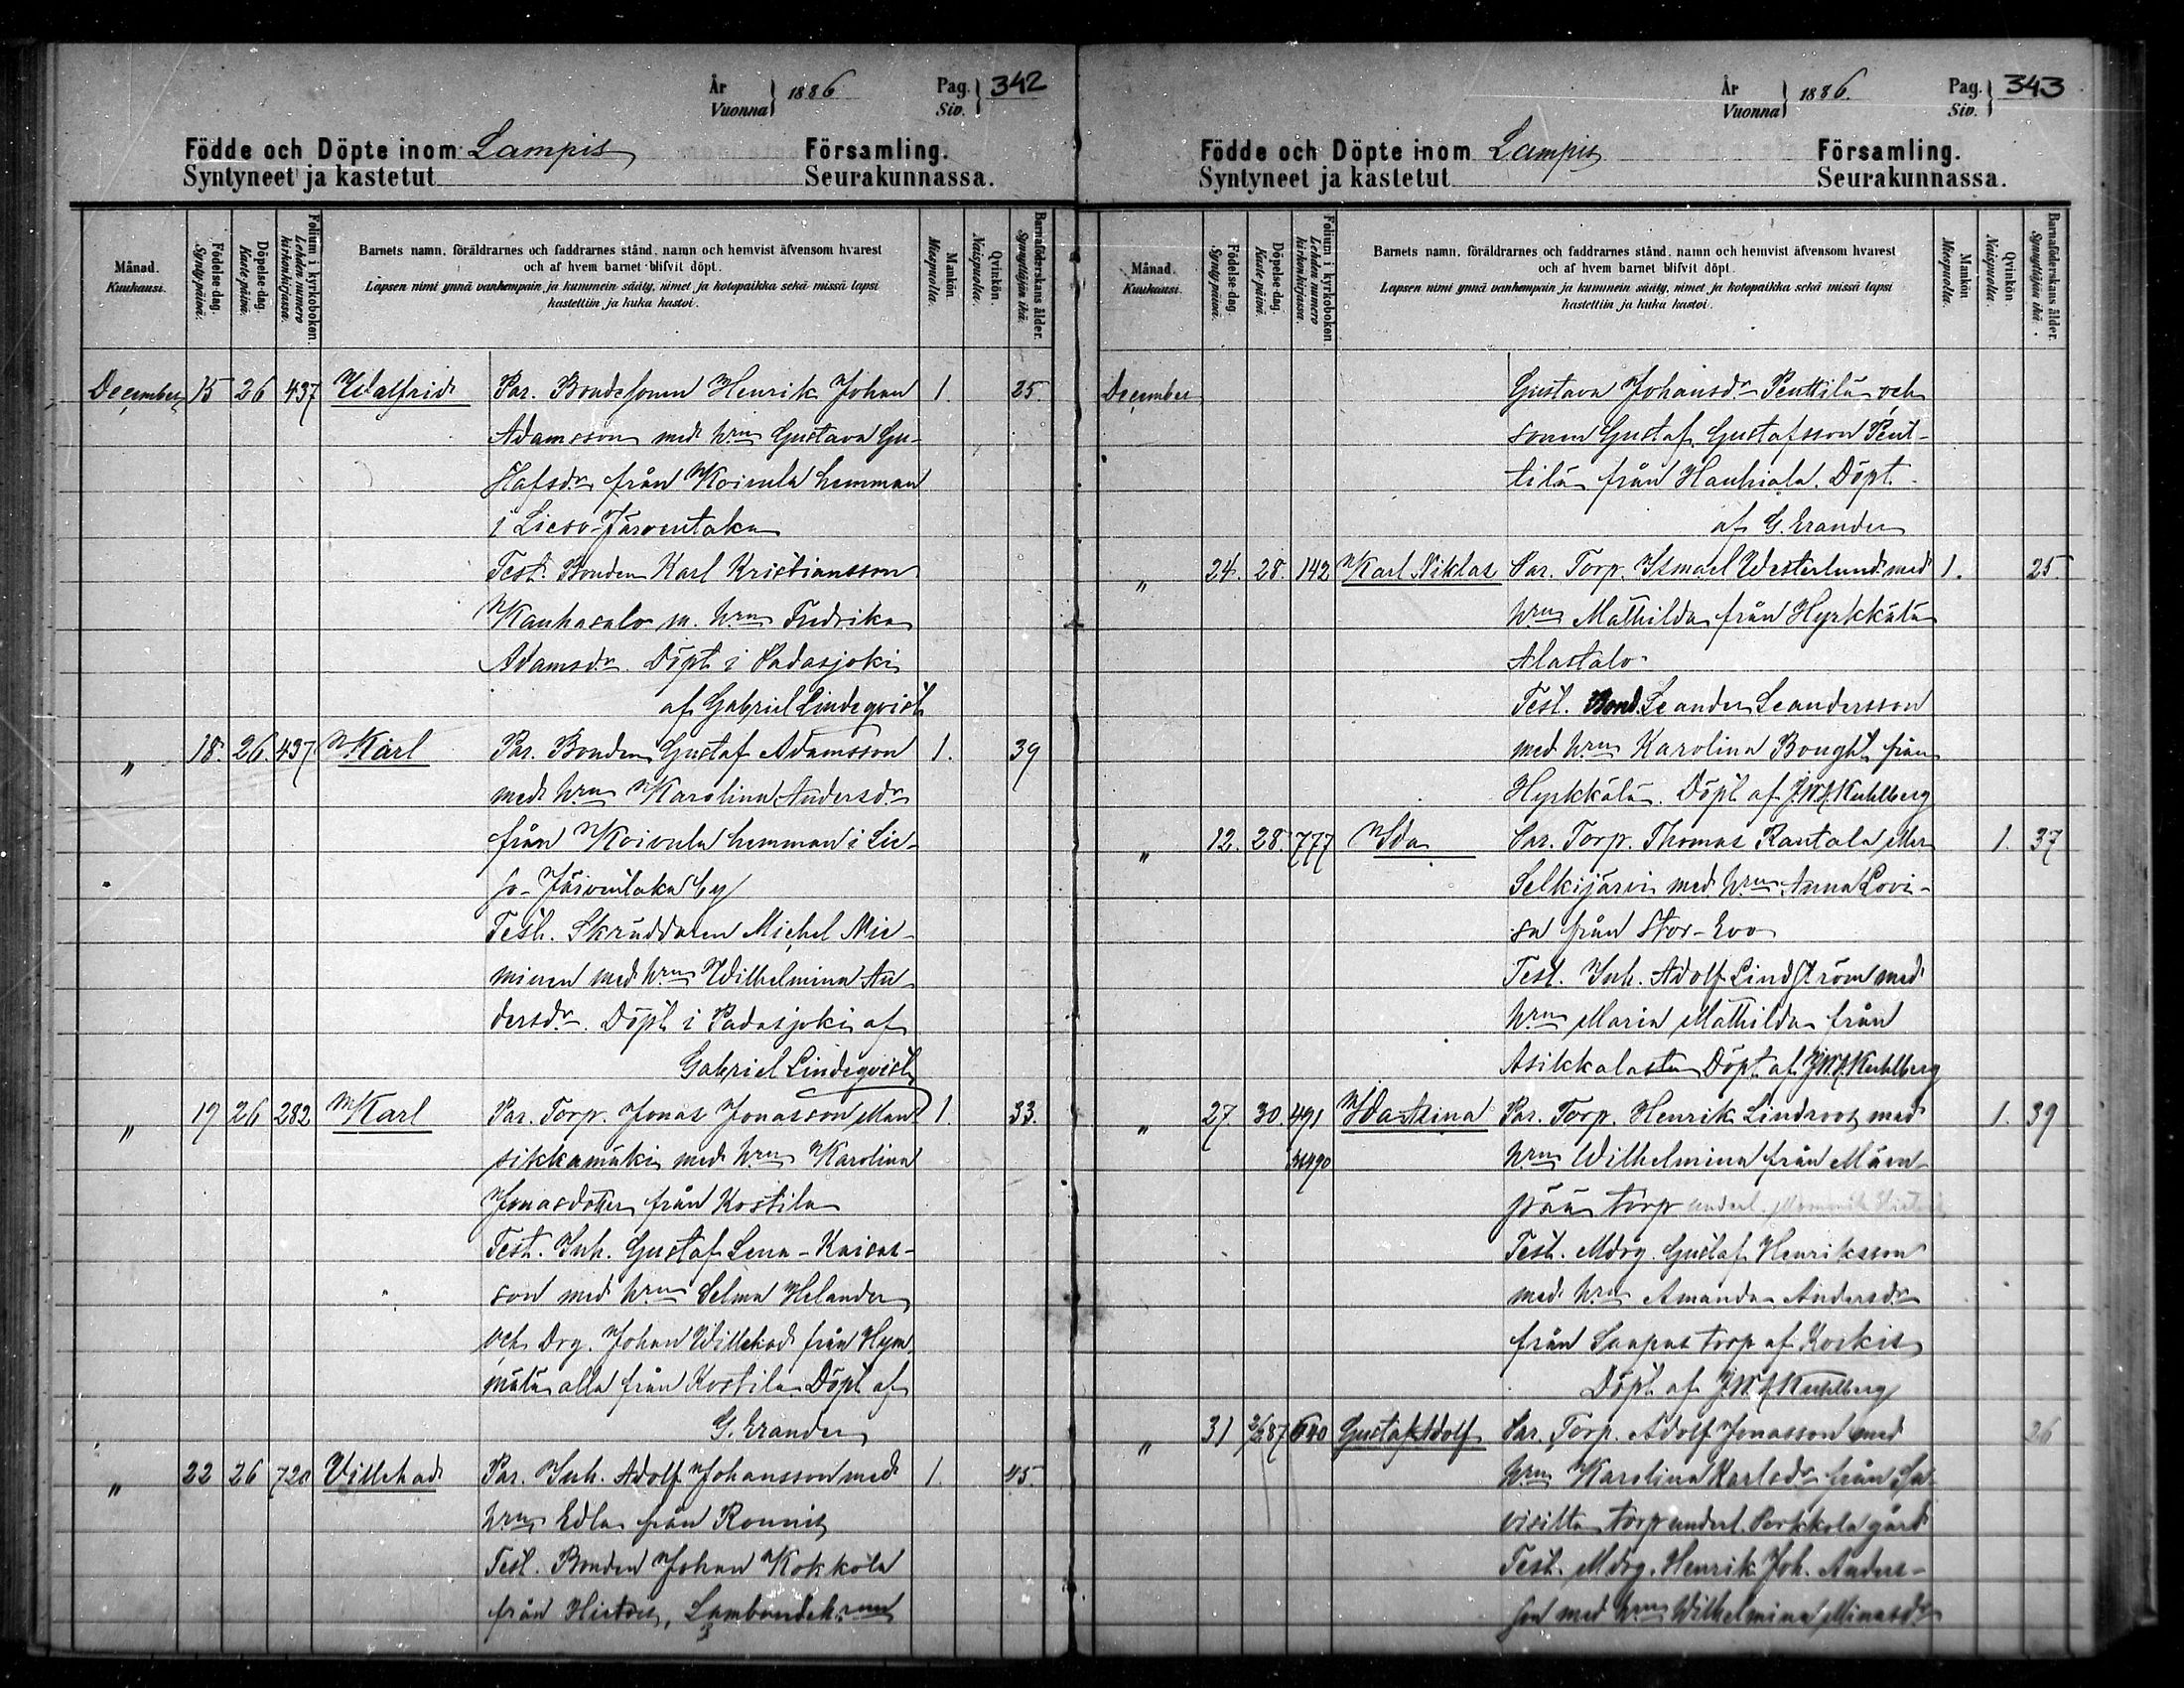 År
Vuonna } 1886
Pag.
Siv. } 342
Födde och Döpte inom Lampis Församling.
Syntyneet ja kastetut Seurakunnassa.
Månad.
Kuukausi.
Födelse-dag.
Syntypäivä.
Döpelse-dag.
Kastepäivä.
Folium i kyrkoboken.
Lehden numero kirkonkirjassa.
Barnets namn, föräldrarnes och faddrarnes stånd, namn och hemvist äfvensom hvarest
och af hvem barnet blifvit döpt.
Lapsen nimi ynnä vanhempain ja kummein sääty, nimet ja kotopaikka sekä missä lapsi
kastettiin ja kuka kastoi.
Mankön.
Miespuolia.
Qvinkön.
Naispuolia.
Barnaföderskans ålder.
Synnyttäjän ikä.
December 15 26 437 Walfrid Par. Bondesonen Henrik Johan 1. 25.
Adamsson med hrun Gustava Gu-
stafsdr från Koivula hemman
i Lieso-Järventaka
Test. Bonden Karl Kristiansson
Kauhasalo m. hrun Fredrika
Adamsdr. Döpt i Padasjoki
af Gabriel Lindeqvist
" 18. 26. 437 Karl Par. Bonden Gustaf Adamsson 1. 39
med hrun Karolina Andersdr
från Koivula hemman i Lie-
so-Järventaka by
Test. Skräddaren Michel Nie-
minen med hrun Wilhelmina An-
dersdr. Döpt i Padasjoki af
Gabriel Lindeqvist
" 19 26 282 Karl Par. Torp. Jonas Jonasson Man- 1. 33.
sikkamäki med hrun Karolina
Jonasdotter från Kostila
Test. Inh. Gustaf Lena-Kaisas-
son med hrun Selma Helander
och Drg. Johan Willehad från Hym-
mälä alla från Kostila Döpt af
G. Erander
" 22 26 720 Villehad Par. Inh. Adolf Johansson med 1. 45.
hrun Edla från Ronnis
Test. Bonden Johan Kokkola
från Hietois,
År
Vuonna } 1886.
Pag.
Siv. } 343
Födde och Döpte inom Lampis Församling.
Syntyneet ja kastetut Seurakunnassa.
Månad.
Kuukausi.
Födelse-dag.
Syntypäivä.
Döpelse-dag.
Kastepäivä.
Folium i kyrkoboken.
Lehden numero kirkonkirjassa.
Barnets namn, föräldrarnes och faddrarnes stånd, namn och hemvist äfvensom hvarest
och af hvem barnet blifvit döpt.
Lapsen nimi ynnä vanhempain ja kummein sääty, nimet ja kotopaikka sekä missä lapsi
kastettiin ja kuka kastoi.
Mankön
Miespuolia.
Qvinkön
Naispuolia.
Barnaföderskans ålder.
Synnyttäjän ikä.
December Gustava Johansdr Penttilä och
sonen Gustaf Gustafsson Pent-
tilä från Hauhiala. Döpt
af G. Erander
" 24. 28. 142 Karl Niklas Par. Torp. Ismael Westerlund med 1. 25.
hrun Mathilda från Hyrkkälä
Alastalo
Test. Bond. Leander Leandersson
med hrun Karolina Bought från
Hyrkkälä. Döpt af J.W.F. Kuhlberg
" 12. 28. 777 Ida Par. Torp. Thomas Rantala eller 1. 37
Selkijärvi med hrun Anna Lovi-
sa från Stor-Evo
Test. Inh. Adolf Lindström med
hrun Maria Mathilda från
Asikkalasta Döpt af J.W.F. Kuhlberg
" 27. 30. 491 Ida Stina Par. Torp. Henrik Lindroos med 1. 39
490 hrun Wilhelmina från Mäen-
pää torp underl.
Test. Mdrg. Gustaf Henriksson
med hrun Amanda Andersdr
från Saapas torp af Koskis
Döpt af J.W.F. Kuhlberg
" 31 2/1 87 640 Gustaf Adolf Par. Torp. Adolf Jonasson med 26
hrun Karolina Karlsdr från Sa-
visilta torp underl. Porkkola gård
Test. Mdrg. Henrik Joh. Anders-
son med hrun Wilhelmina Minasdr